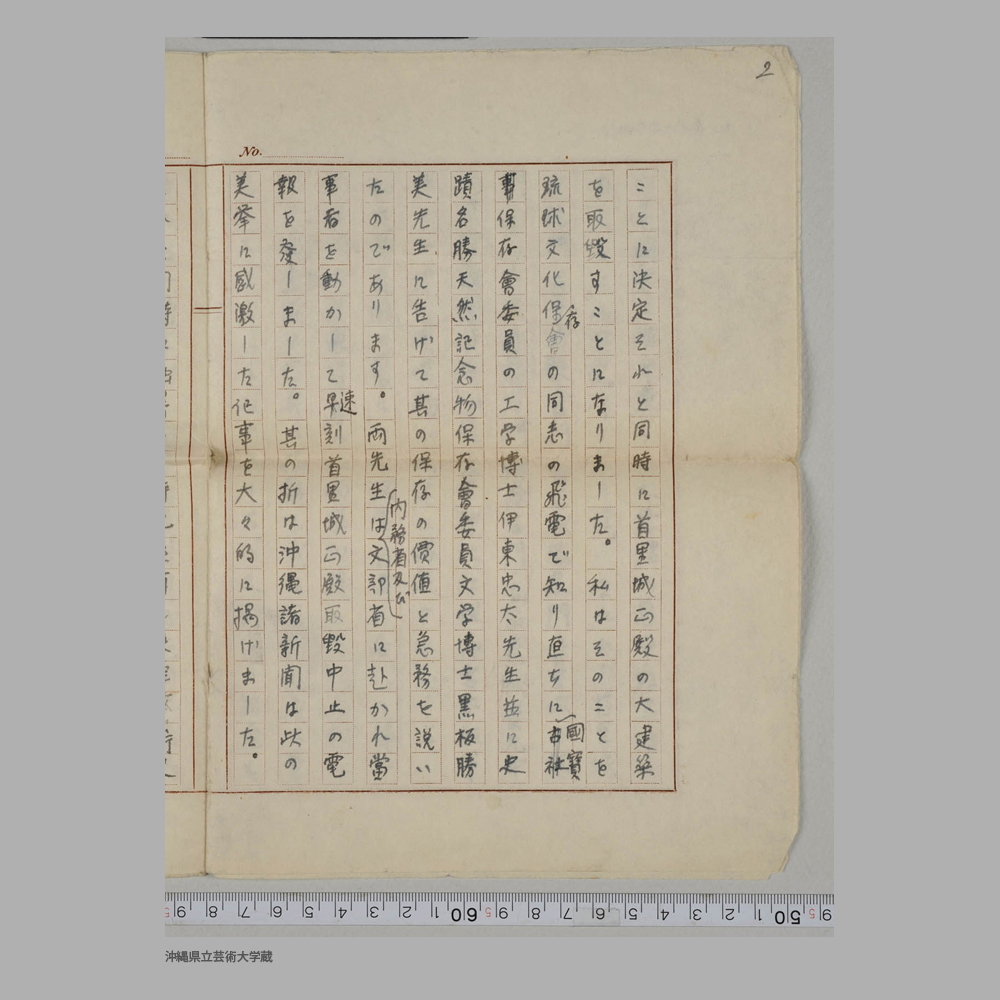 2
No.
ことに決定それと同時に首里城正殿の大建築
を取毀すことになりました。私はそのことを
琉球文化保存會の同志の飛電で知り直ちに國寶
古社
保存會委員の工学博士伊東忠太先生並に史
蹟名勝天然記念物保存會委員文学博士黒板勝
美先生に告げて其の保存の價値と急務を説い
たのであります。両先生は内務省及び文部省に赴かれ當
事者を動かして早速刻首里城正殿取毀中止の電
報を發しました。其の折は沖縄諸新聞は此の
美挙に感激した記事を大々的に掲げました。
9 8 7 6 5 4 3 2 1 60 9 8 7 6 5 4 3 2 1 50 9
沖縄県立芸術大学蔵